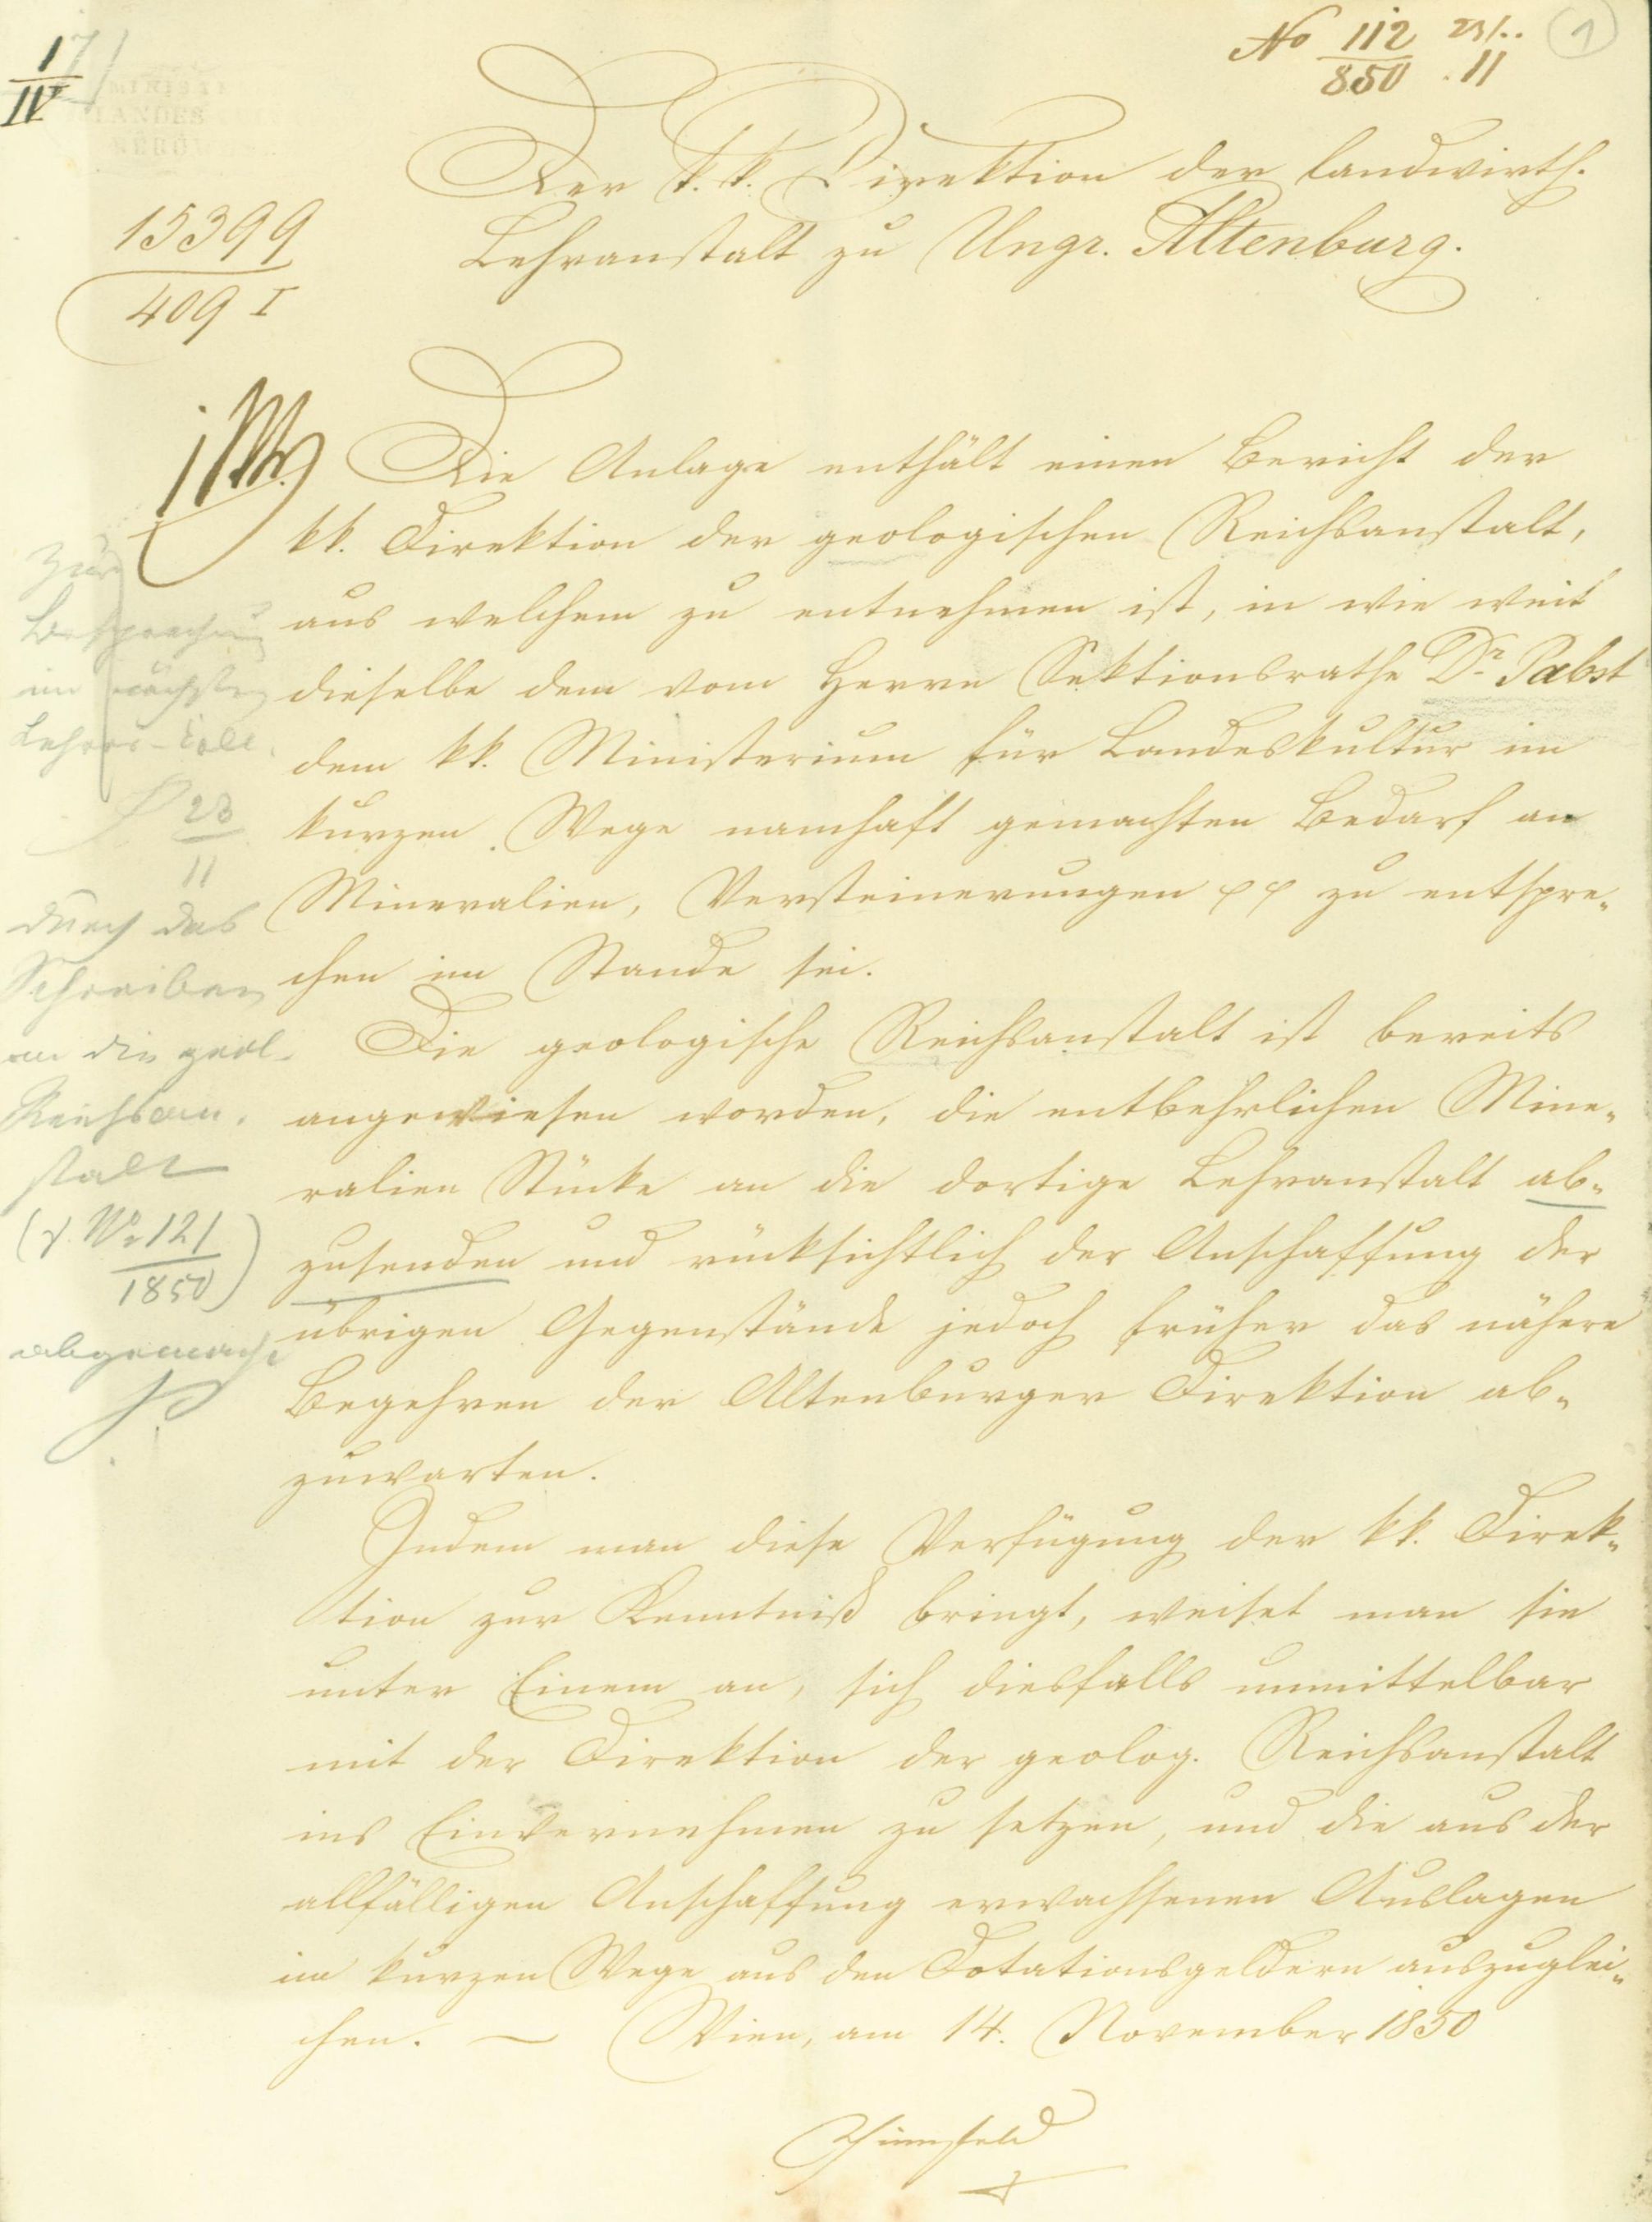 I
IV
No 112 23/..
850 . 11
1
MINISTE
LANDES
15399
409 I
Der k. k. Direktion der landwirth.
Lehranstalt zu Ungr. Altenburg.
Die Anlage enthält einen Bericht der
kk. Direktion der geologischen Reichsanstalt,
aus welchem zu entnehmen ist, in wie weit
dieselbe dem vom Herrn Sektionsrathe Dr Pabst
dem kk. Ministerium für Landeskultur im
kurzen Wege namhaft gemachten Bedarf an
Mineralien, Versteinerungen pp zu entspre-
chen im Stande sei.
Die geologische Reichsanstalt ist bereits
angewiesen worden, die entbehrlichen Mine-
ralien Stücke an die dortige Lehranstalt ab-
zusenden und rücksichtlich der Anschaffung der
übrigen Gegenstände jedoch früher das nähere
Begehren der Altenburger Direktion ab-
zuwarten.
Indem man diese Verfügung der kk. Direk-
tion zur Kenntniß bringt, weiset man sie
unter Einem an, sich diesfalls unmittelbar
mit der Direktion der geolog. Reichsanstalt
ins Einvernehmen zu setzen, und die aus der
allfälligen Anschaffung erwachsenen Auslagen
im kurzen Wege aus den Dotationsgeldern auszuglei-
chen. — Wien, am 14. November 1850
Thinnfeld
Zur
Besprechung
im nächsten
Lehrer-Coll.
23
11
durch das
Schreiben
an die geol.
Reichsan-
stalt
(v. No 121
1850)
abgemacht